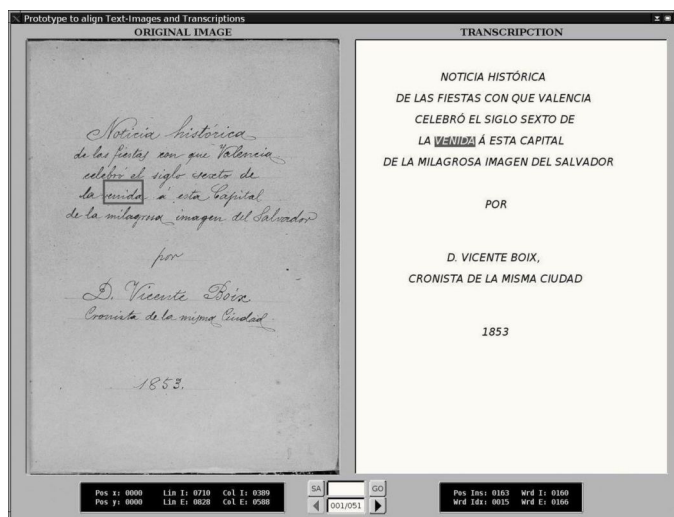 Prototype to align Text-Images and Transcriptions
ORIGINAL IMAGE
Noticia histórica
de las fiestas con que Valencia
celebró el siglo sexto de
la venida á esta Capital
de la milagrosa imagen del Salvador
por
D. Vicente Boix
Cronista de la misma Ciudad
1853.
TRANSCRIPCTION
NOTICIA HISTÓRICA
DE LAS FIESTAS CON QUE VALENCIA
CELEBRÓ EL SIGLO SEXTO DE
LA VENIDA Á ESTA CAPITAL
DE LA MILAGROSA IMAGEN DEL SALVADOR
POR
D. VICENTE BOIX,
CRONISTA DE LA MISMA CIUDAD
1853
Pos x: 0000 Lin I: 0710 Col I: 0389
Pos y: 0000 Lin E: 0828 Col E: 0588
SA GO
001/051
Pos Ins: 0163 Wrd I: 0160
Wrd Idx: 0015 Wrd E: 0166